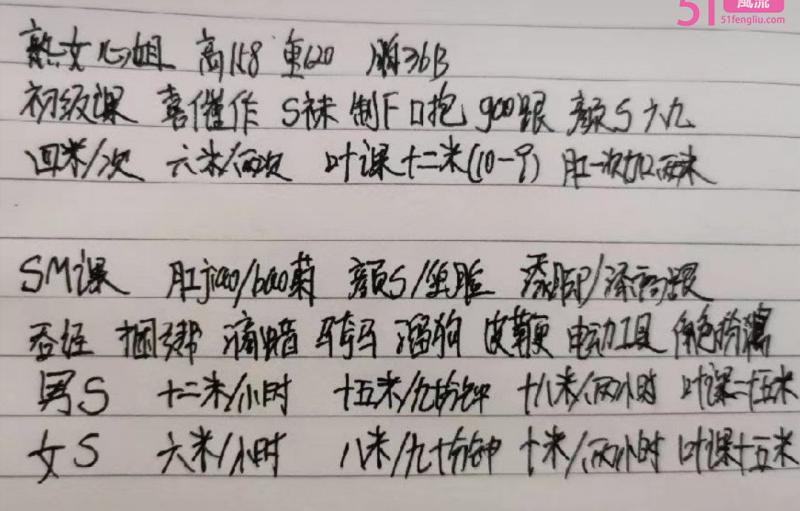 51風流
51fengliu.com
熟女心姐 高158 重620 胸36B
初级课 喜催作 S袜 制F 口抱 900跟 颜S 六九
四米/次 六米/两次 叶课十二米(10-9) 肛一次加两米
SM课 肛jiao/bao菊 颜S/坐脸 添脚/添高跟
吞经 捆绑 滴蜡 骑马 溜狗 皮鞭 电动工具 角色扮演
男S 十二米/小时 十五米/九十分钟 十八米/两小时 叶课二十五米
女S 六米/小时 八米/九十分钟 十米/两小时 叶课十五米